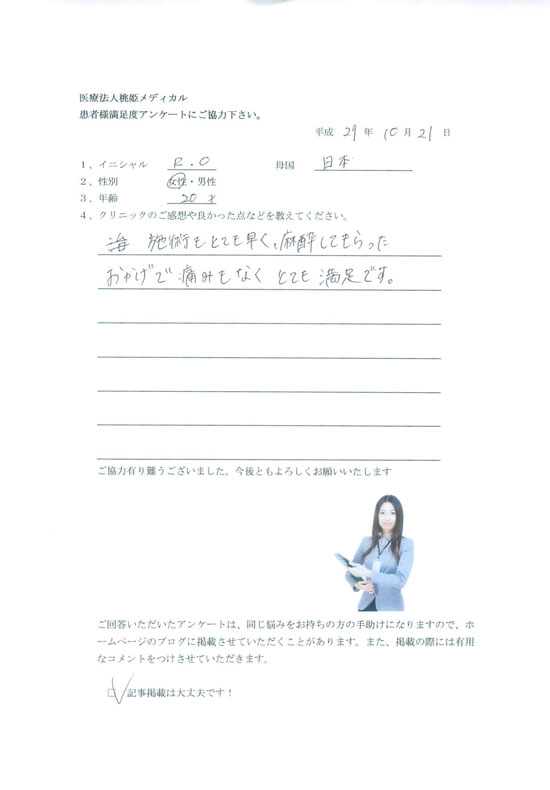 医療法人桃姫メディカル
患者様満足度アンケートにご協力下さい。
平成 29 年 10 月 21 日
1、イニシャル R.O 母国 日本
2、性別 女性・男性
3、年齢 20 才
4、クリニックのご感想や良かった点などを教えてください。
施術もとても早く、麻酔してもらった
おかげで痛みもなく とても満足です。
ご協力有り難うございました。今後ともよろしくお願いいたします
ご回答いただいたアンケートは、同じ悩みをお持ちの方の手助けになりますので、ホ
ームページのブログに掲載させていただくことがあります。また、掲載の際には有用
なコメントをつけさせていただきます。
□ 記事掲載は大丈夫です！